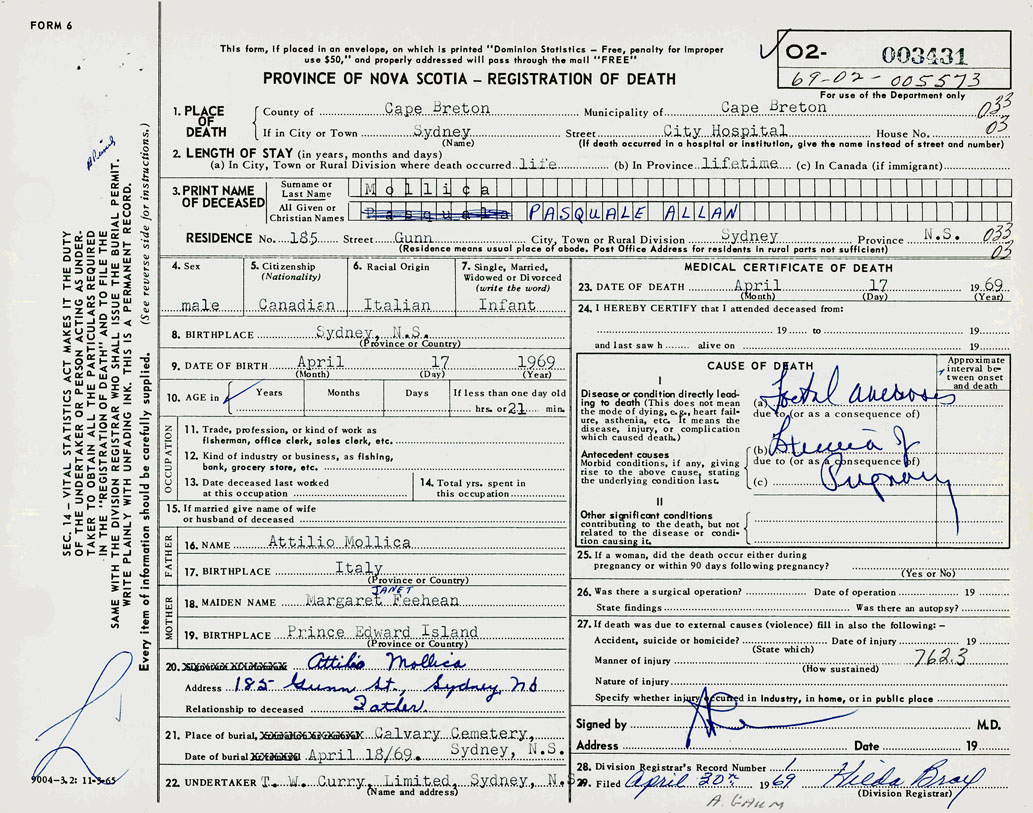 FORM 6
This form, if placed in an envelope, on which is printed "Dominion Statistics – Free, penalty for improper
use $50," and properly addressed will pass through the mail "FREE"
PROVINCE OF NOVA SCOTIA – REGISTRATION OF DEATH
02- 003431
69-02-005573
For use of the Department only
1. PLACE OF DEATH
County of Cape Breton Municipality of Cape Breton 033
If in City or Town Sydney Street City Hospital House No. 03
(Name) (If death occurred in a hospital or institution, give the name instead of street and number)
2. LENGTH OF STAY (in years, months and days)
(a) In City, Town or Rural Division where death occurred life (b) In Province lifetime (c) In Canada (if immigrant)
3. PRINT NAME OF DECEASED
Surname or Last Name Mollica
All Given or Christian Names Pasquale PASQUALE ALLAN
RESIDENCE No. 185 Street Gunn City, Town or Rural Division Sydney Province N.S. 033
(Residence means usual place of abode. Post Office Address for residents in rural parts not sufficient) 03
4. Sex
male
5. Citizenship
(Nationality)
Canadian
6. Racial Origin
Italian
7. Single, Married,
Widowed or Divorced
(write the word)
Infant
8. BIRTHPLACE Sydney, N.S.
(Province or Country)
9. DATE OF BIRTH April 17 1969
(Month) (Day) (Year)
10. AGE in Years Months Days If less than one day old
hrs. or 21 min.
OCCUPATION
11. Trade, profession, or kind of work as
fisherman, office clerk, sales clerk, etc.
12. Kind of industry or business, as fishing,
bank, grocery store, etc.
13. Date deceased last worked
at this occupation
14. Total yrs. spent in
this occupation
15. If married give name of wife
or husband of deceased
FATHER
16. NAME Attilio Mollica
17. BIRTHPLACE Italy
(Province or Country)
MOTHER
JANET
18. MAIDEN NAME Margaret Feehean
19. BIRTHPLACE Prince Edward Island
(Province or Country)
20. Attilio Mollica
Address 185 Gunn St., Sydney, NS
Relationship to deceased Father.
21. Place of burial, Calvary Cemetery,
Date of burial April 18/69. Sydney, N.S.
22. UNDERTAKER T. W. Curry, Limited, Sydney, N.S.
(Name and address)
MEDICAL CERTIFICATE OF DEATH
23. DATE OF DEATH April 17 1969
(Month) (Day) (Year)
24. I HEREBY CERTIFY that I attended deceased from:
19 to 19
and last saw h alive on 19
CAUSE OF DEATH
Approximate
interval be-
tween onset
and death
I
Disease or condition directly lead-
ing to death (This does not mean
the mode of dying, e.g., heart fail-
ure, asthenia, etc. It means the
disease, injury, or complication
which caused death.)
(a) Foetal
due to (or as a consequence of)
Antecedent causes
Morbid conditions, if any, giving
rise to the above cause, stating
the underlying condition last.
(b)
due to (or as a consequence of)
(c)
II
Other significant conditions
contributing to the death, but not
related to the disease or condi-
tion causing it.
25. If a woman, did the death occur either during
pregnancy or within 90 days following pregnancy?
(Yes or No)
26. Was there a surgical operation? Date of operation 19
State findings Was there an autopsy?
27. If death was due to external causes (violence) fill in also the following: –
Accident, suicide or homicide? Date of injury 19
(State which)
Manner of injury 762.3
(How sustained)
Nature of injury
Specify whether injury occurred in Industry, in home, or in public place
Signed by M.D.
Address Date 19
28. Division Registrar's Record Number 1
29. Filed April 30th 1969
(Division Registrar)
A. GAUM
SEC. 14 – VITAL STATISTICS ACT MAKES IT THE DUTY
OF THE UNDERTAKER OR PERSON ACTING AS UNDER-
TAKER TO OBTAIN ALL THE PARTICULARS REQUIRED
IN THE "REGISTRATION OF DEATH" AND TO FILE THE
SAME WITH THE DIVISION REGISTRAR WHO SHALL ISSUE THE BURIAL PERMIT.
WRITE PLAINLY WITH UNFADING INK. THIS IS A PERMANENT RECORD.
Every item of information should be carefully supplied. (See reverse side for instructions.)
9004-3.2: 11-3-65